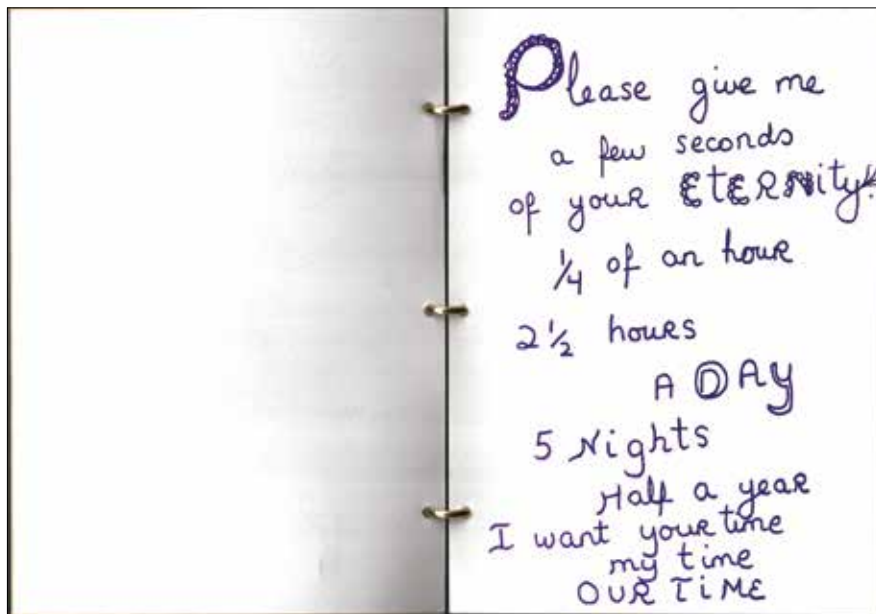 Please give me
a few seconds
of your ETERNity!
1/4 of an hour
2 1/2 hours
A DAY
5 Nights
Half a year
I want your time
my time
OUR TiME